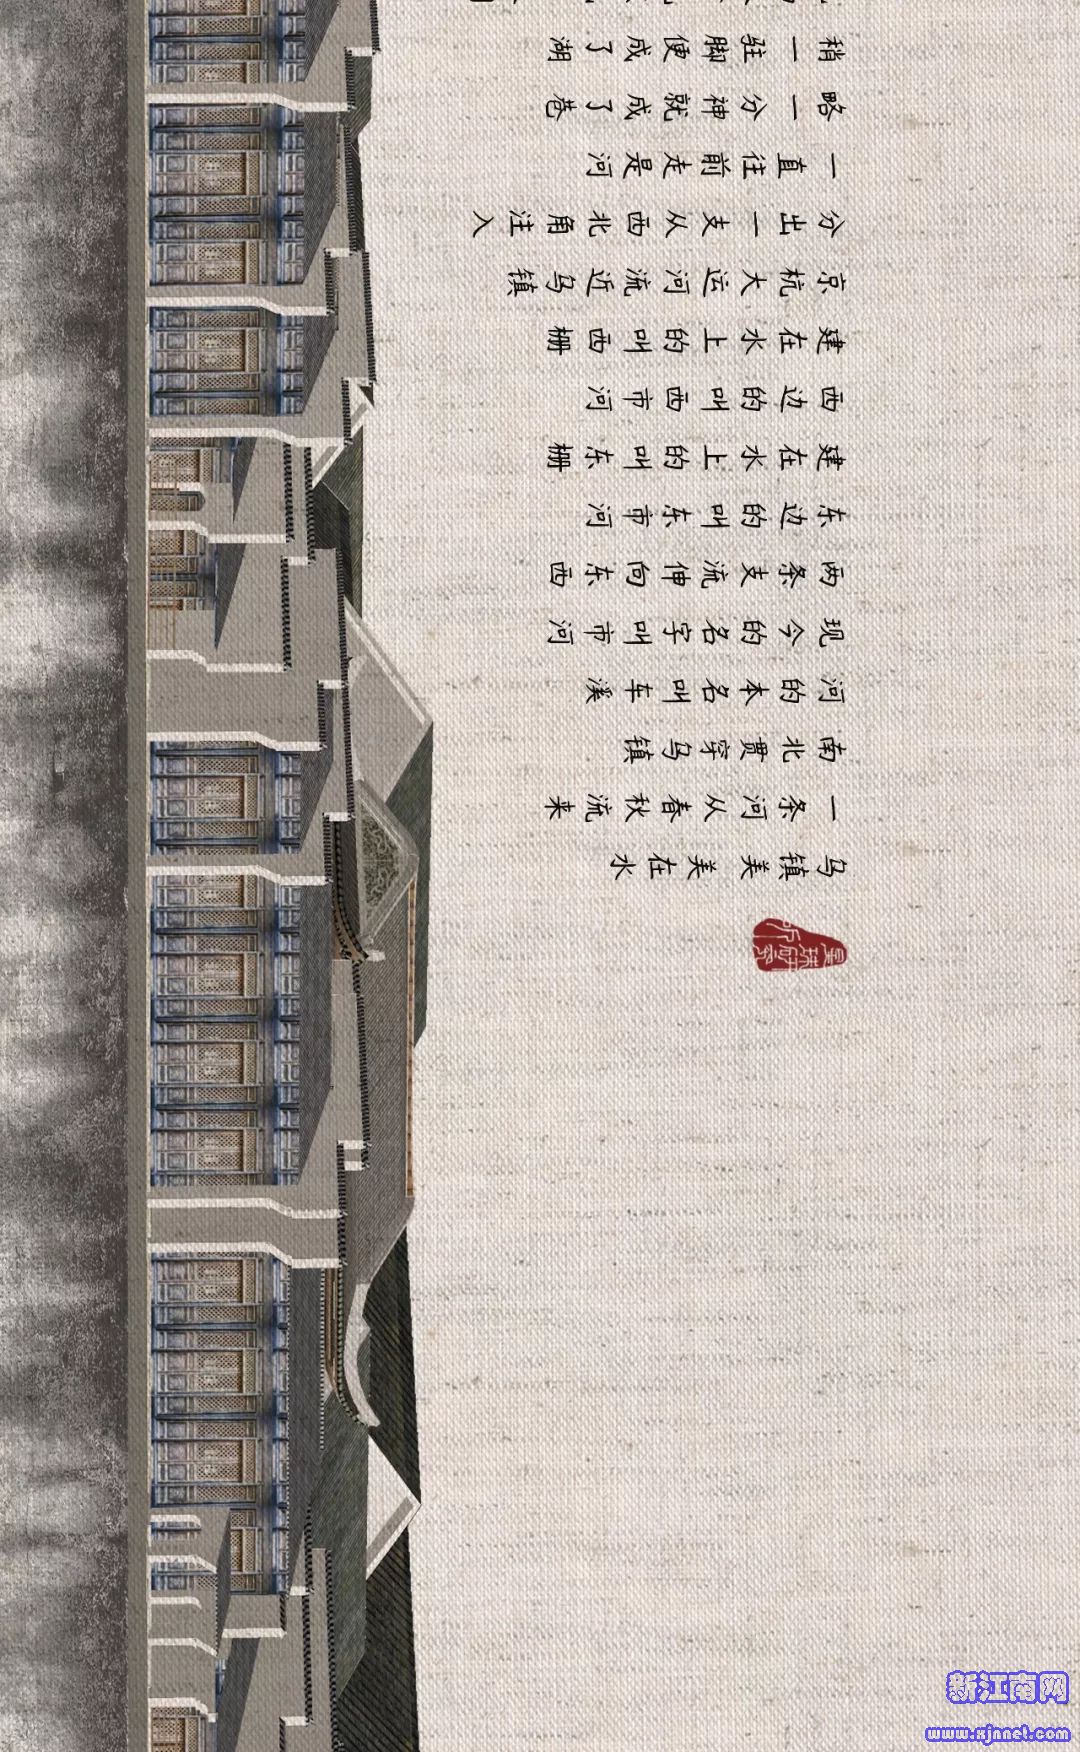 乌镇美 美在水
一条河从春秋流来
南北贯穿乌镇
河的本名叫车溪
现今的名字叫市河
两条支流伸向东西
东边的叫东市河
建在水上的叫东栅
西边的叫西市河
建在水上的叫西栅
京杭大运河流近乌镇
分出一支从西北角注入
一直往前走是河
略一分神就成了巷
稍一驻脚便成了湖
新江南网
www.xjnnet.com